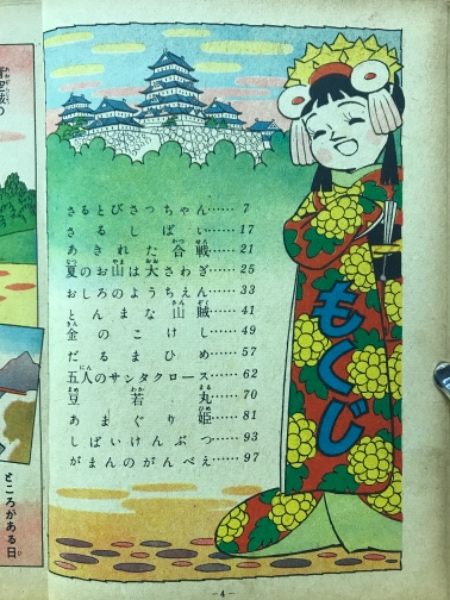 もくじ
さるとびさっちゃん…… 7
さるしばい…… 17
あきれた合戦…… 21
夏のお山は大さわぎ…… 25
おしろのようちえん…… 33
とんまな山賊…… 41
金のこけし…… 49
だるまひめ…… 57
五人のサンタクロース…… 62
豆若丸…… 70
あまぐり姫…… 81
しばいけんぶつ…… 93
がまんのがんべえ…… 97
ところがある日
-4-